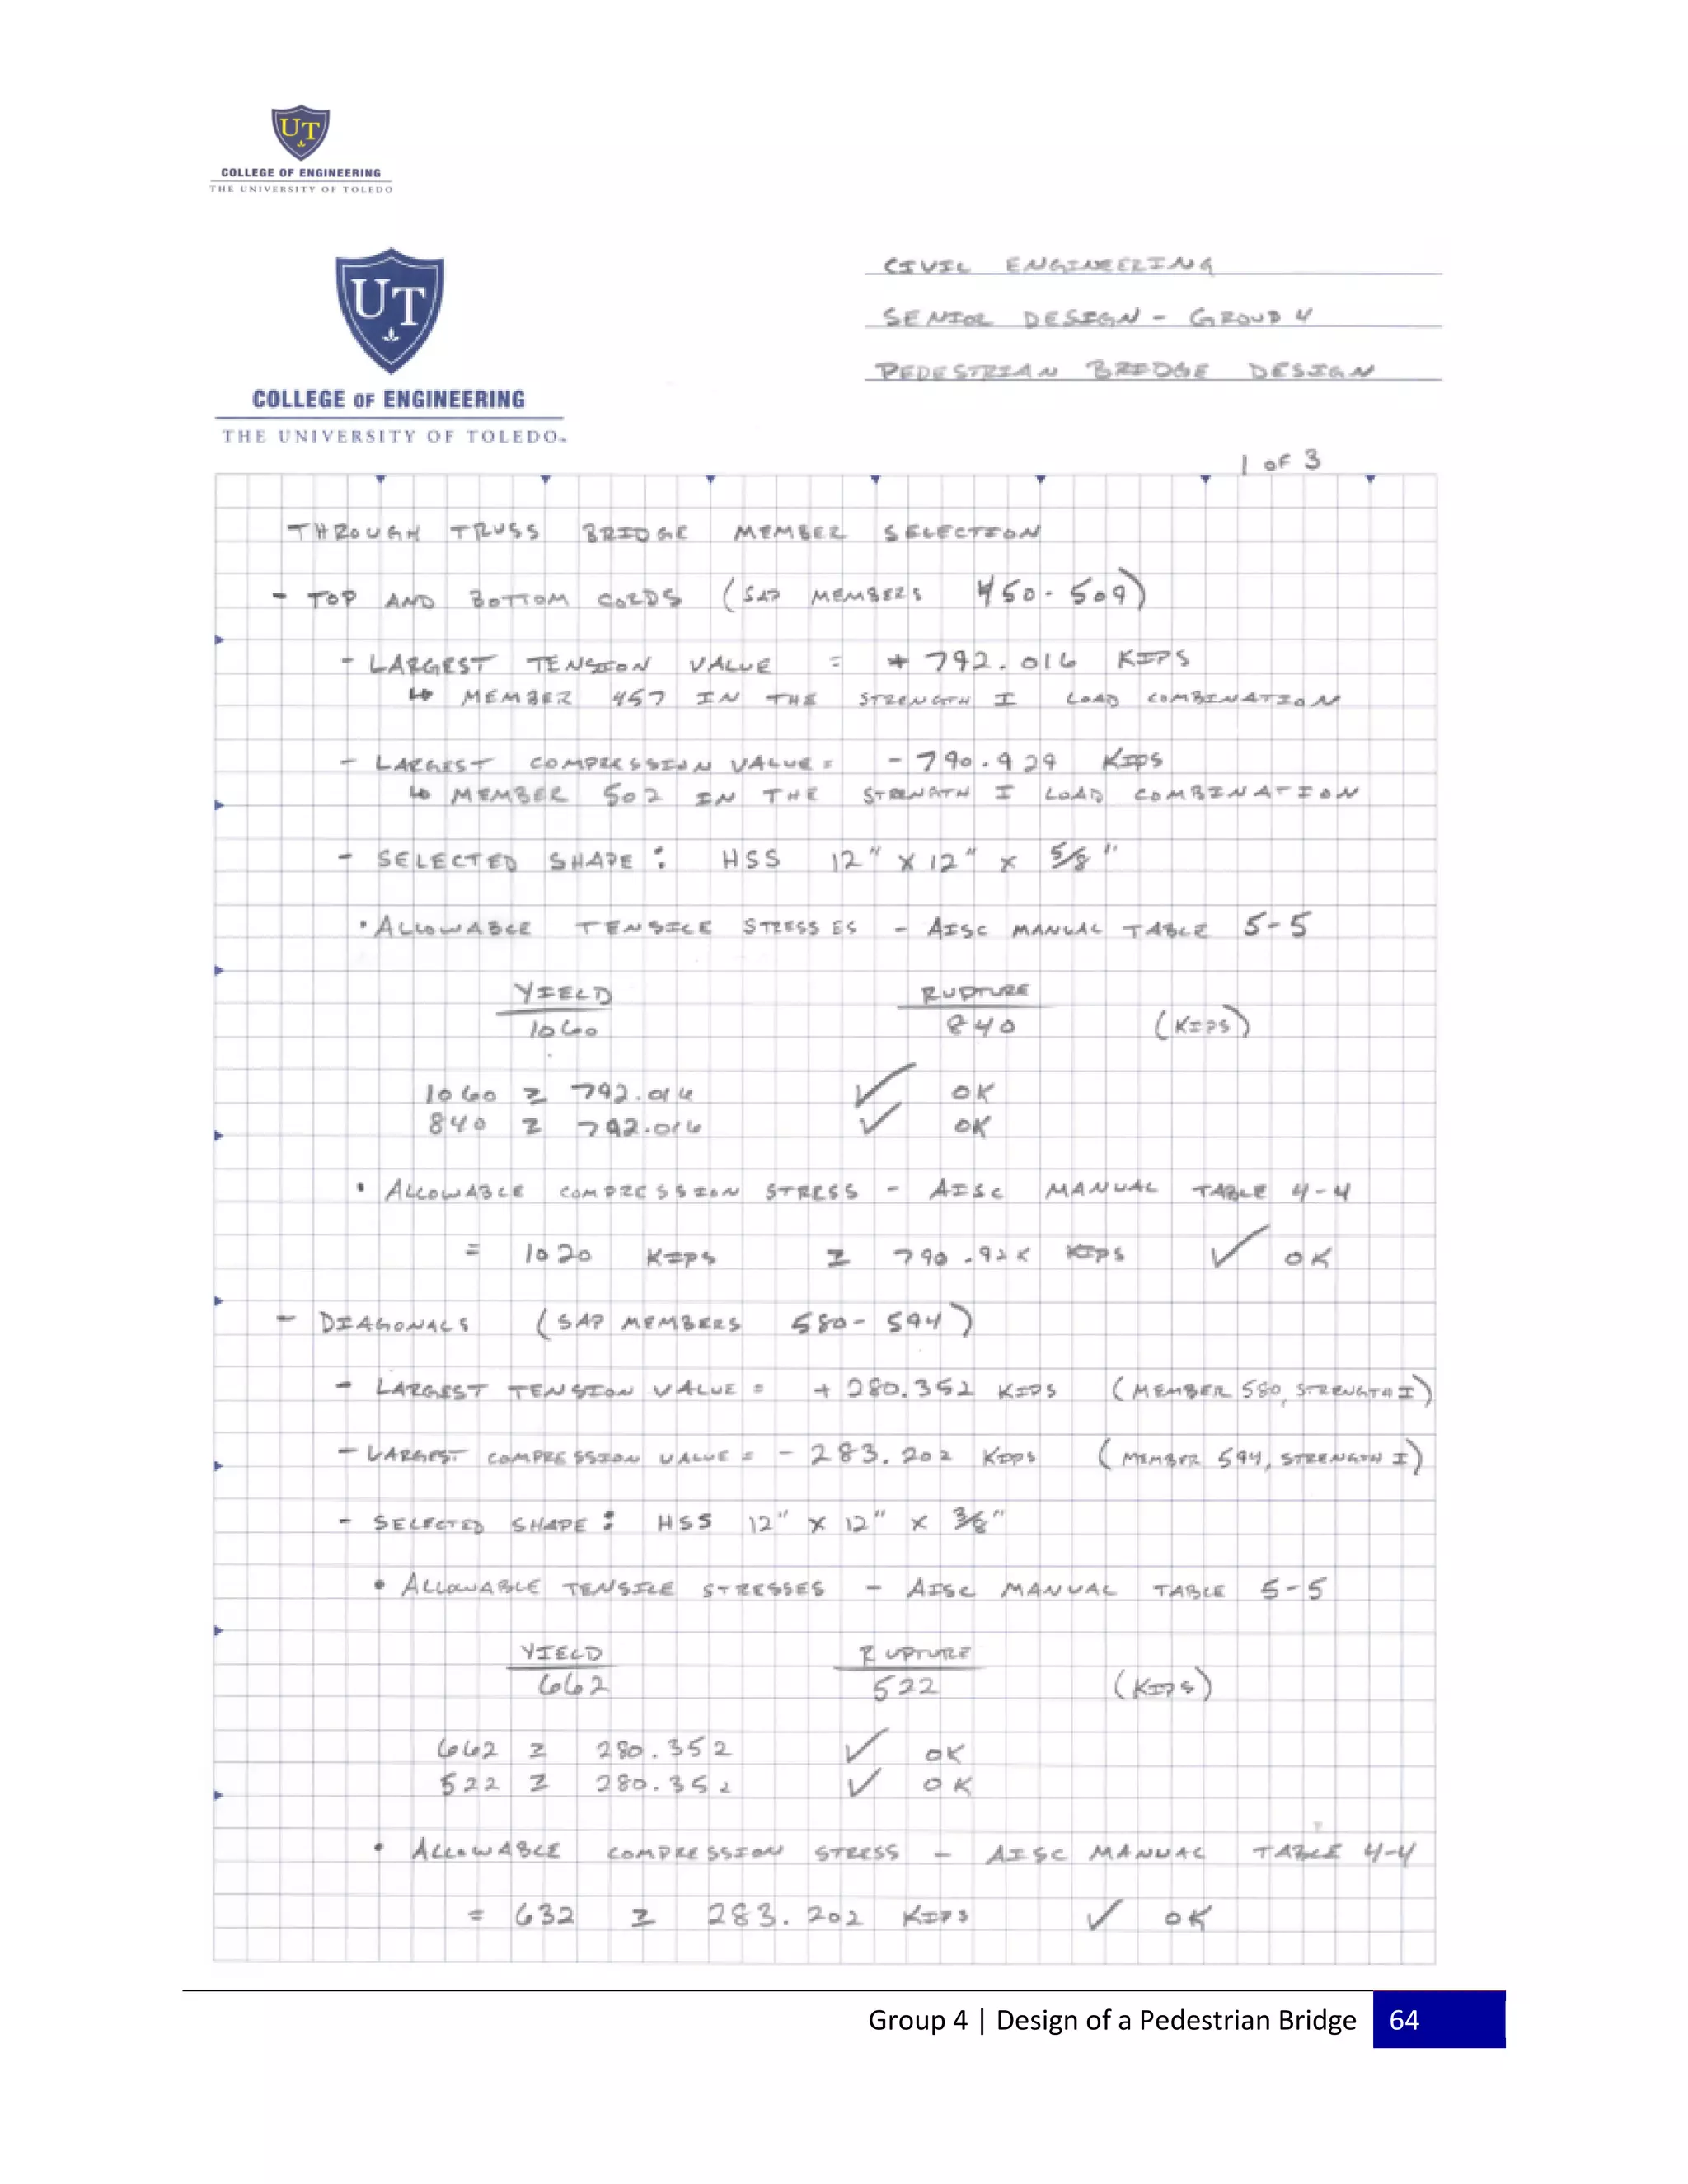 UT
COLLEGE OF ENGINEERING
THE UNIVERSITY OF TOLEDO
UT
COLLEGE OF ENGINEERING
THE UNIVERSITY OF TOLEDO
CIVIL ENGINEERING
SENIOR DESIGN - GROUP 4
PEDESTRIAN BRIDGE DESIGN
1 OF 3
THROUGH TRUSS BRIDGE MEMBER SELECTION
- TOP AND BOTTOM CORDS (SAP MEMBERS 450-509)
- LARGEST TENSION VALUE = + 792.016 KIPS
↳ MEMBER 457 IN THE STRENGTH I LOAD COMBINATION
- LARGEST COMPRESSION VALUE = - 790.929 KIPS
↳ MEMBER 502 IN THE STRENGTH I LOAD COMBINATION
- SELECTED SHAPE: HSS 12" X 12" X 5/8"
• ALLOWABLE TENSILE STRESSES - AISC MANUAL TABLE 5-5
YIELD RUPTURE
1060 840 (KIPS)
1060 ≥ 792.016 ✓ OK
840 ≥ 792.016 ✓ OK
• ALLOWABLE COMPRESSION STRESS - AISC MANUAL TABLE 4-4
= 1020 KIPS ≥ KIPS ✓ OK
- DIAGONALS (SAP MEMBERS 580-594)
- LARGEST TENSION VALUE = + 280.352 KIPS (MEMBER 580, STRENGTH I)
- LARGEST COMPRESSION VALUE = - 283.202 KIPS (MEMBER 594, STRENGTH I)
- SELECTED SHAPE: HSS 12" X 12" X 3/8"
• ALLOWABLE TENSILE STRESSES - AISC MANUAL TABLE 5-5
YIELD RUPTURE
662 522 (KIPS)
662 ≥ 280.352 ✓ OK
522 ≥ 280.352 ✓ OK
• ALLOWABLE COMPRESSION STRESS - AISC MANUAL TABLE 4-4
= 632 ≥ 283.202 KIPS ✓ OK
Group 4 | Design of a Pedestrian Bridge 64